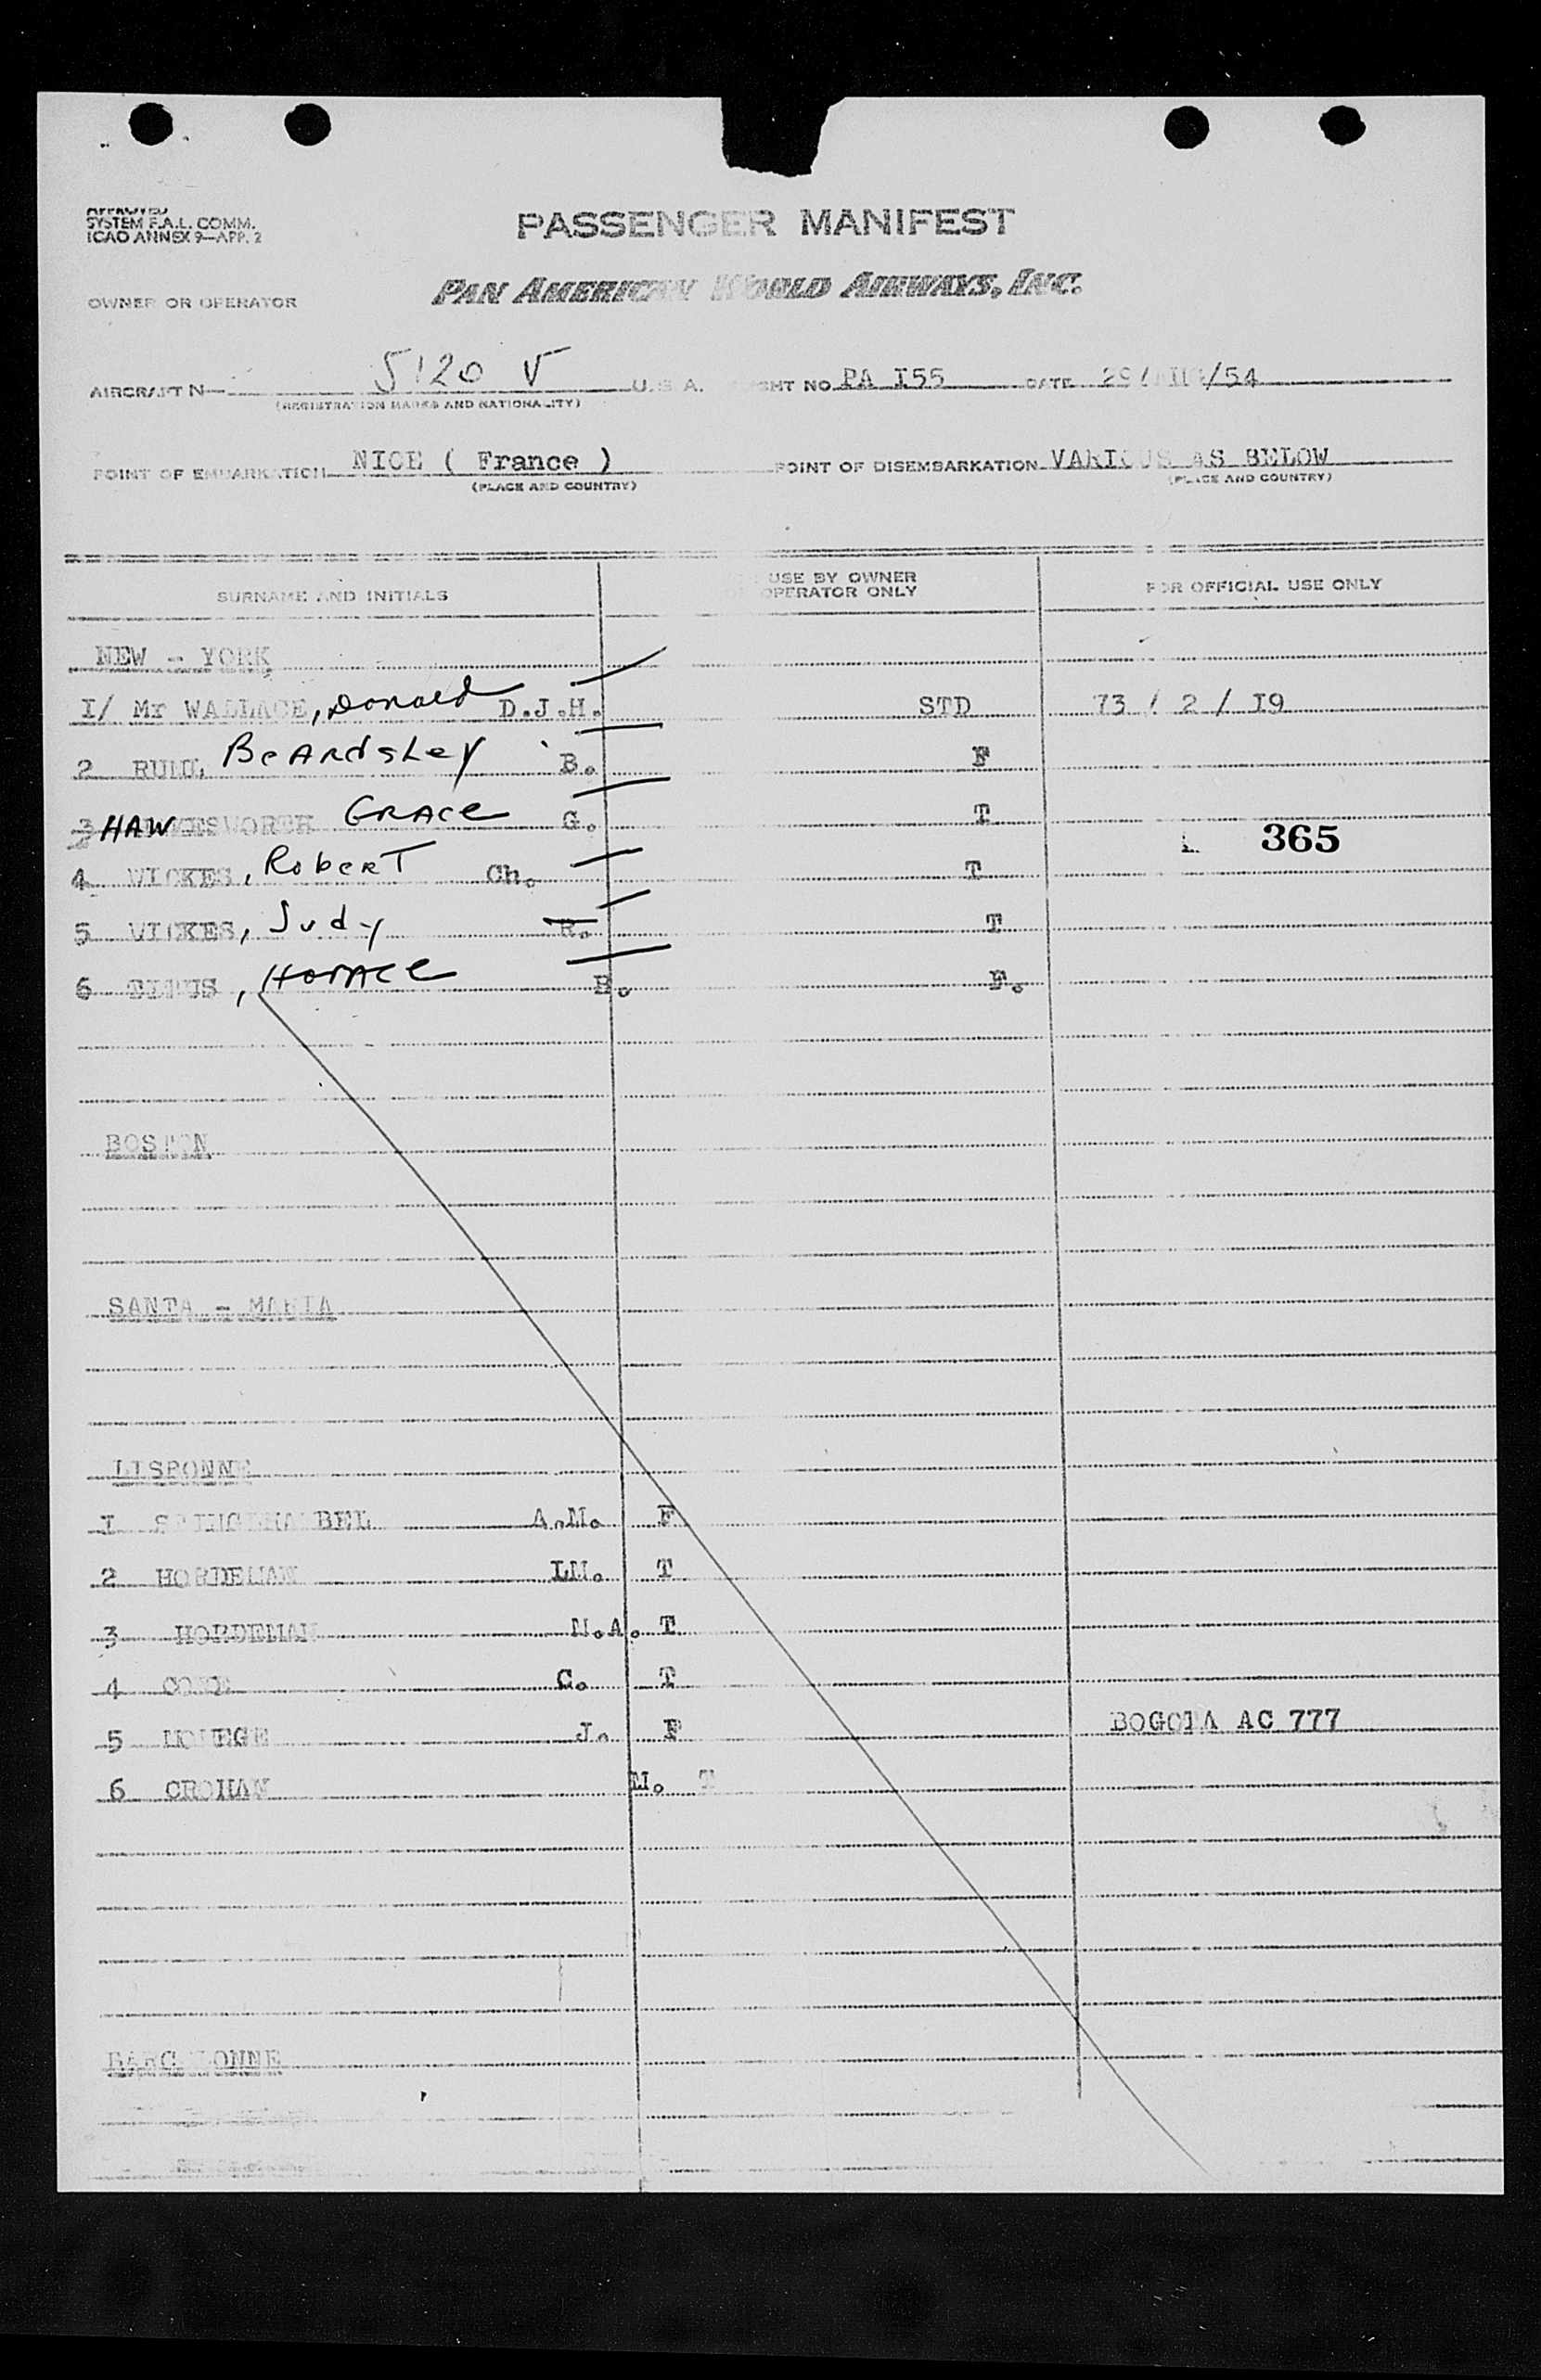 APPROVED
SYSTEM F.A.L. COMM.
ICAO ANNEX 9—APP. 2
PASSENGER MANIFEST
OWNER OR OPERATOR PAN AMERICAN WORLD AIRWAYS, INC.
AIRCRAFT N— 5120 V U.S.A. FLIGHT NO. PA I55 DATE 29/ /54
(REGISTRATION MARKS AND NATIONALITY)
POINT OF EMBARKATION NICE ( France ) POINT OF DISEMBARKATION VARIOUS AS BELOW
(PLACE AND COUNTRY) (PLACE AND COUNTRY)
SURNAME AND INITIALS USE BY OWNER OR OPERATOR ONLY FOR OFFICIAL USE ONLY
NEW - YORK
I/ Mr WALLACE, Donald D.J.H. STD 73 / 2 / I9
2 RUML Beardsley B. F
3 HAWESWORTH GRACE G. T
365
4 WICKES, Robert Ch. T
5 WICKES, Judy R. T
6 TITUS, Horace H. F.
BOSTON
SANTA - MARIA
LISBONNE
I BEL A.M. F
2 HORDEMAN LM. T
3 HORDEMAN N.A. T
4 C. T
5 J. F BOGOTA AC 777
6 CROHAN M. T
BARCELONNE